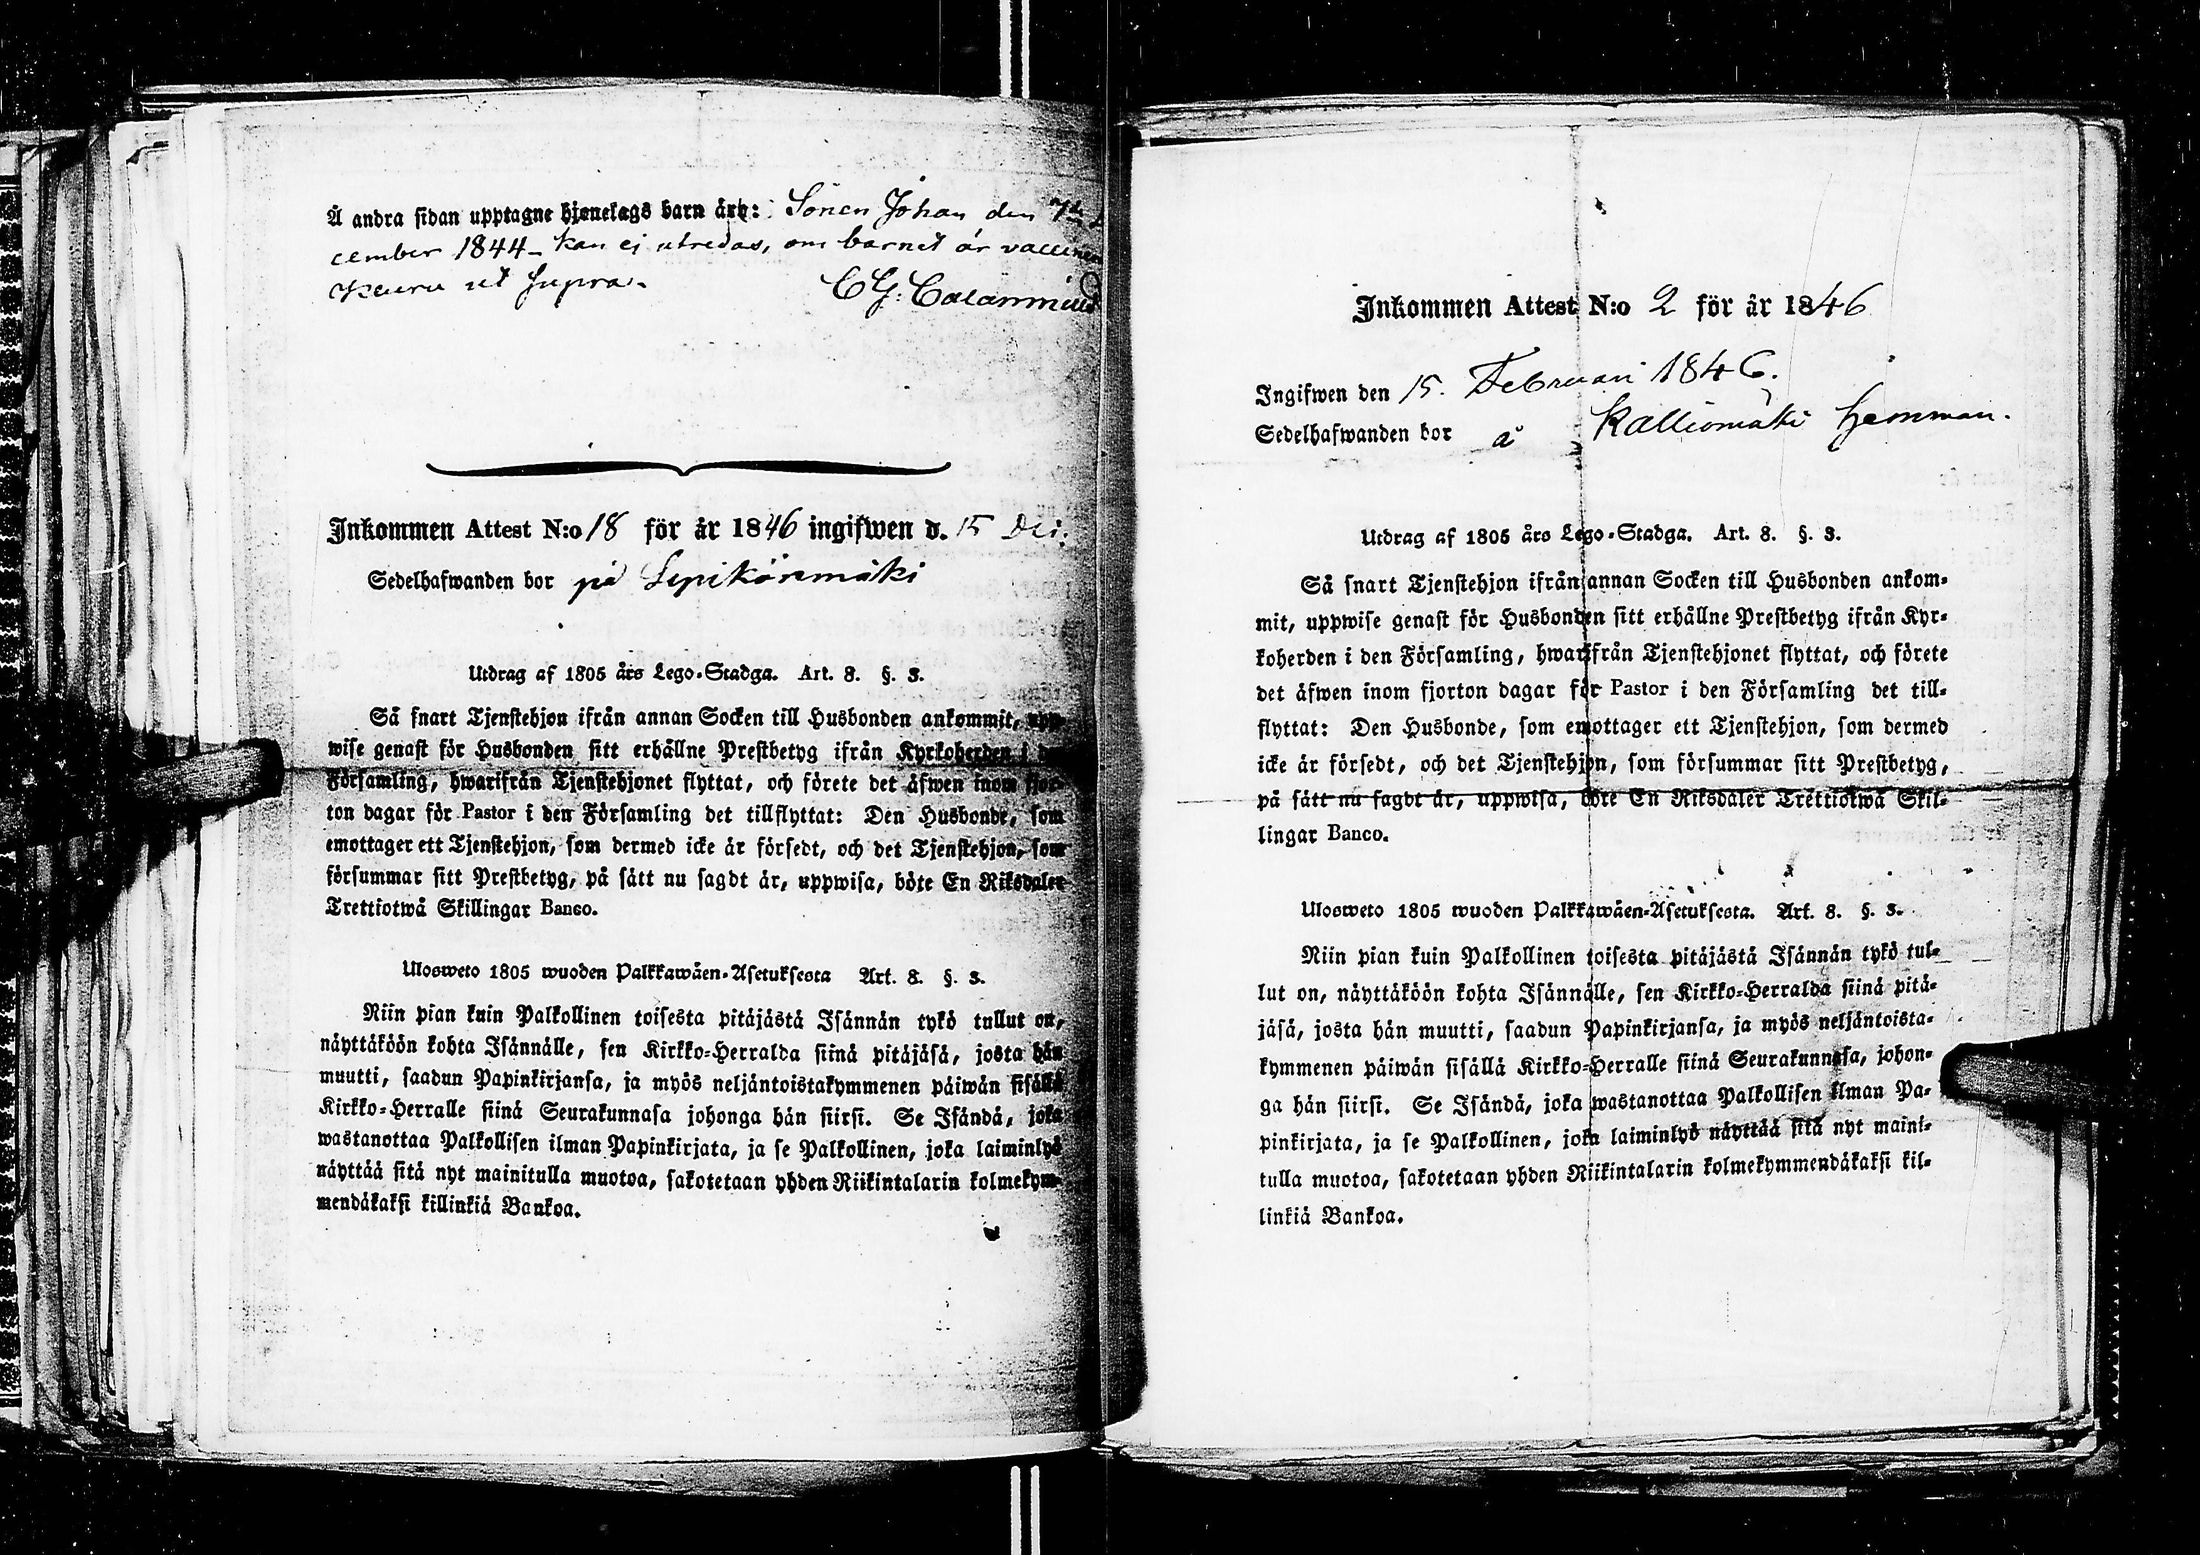 Å andra sidan upptagne hjonelags barn äro: Sonen Johan den
cember 1844 – kan ej utredas, om barnet är
Keuru ut Supra.
Inkommen Attest N:o 18 för år 1846 ingifwen d. 15 Dec:
Sedelhafwanden bor på
Utdrag af 1805 års Lego-Stadga. Art. 8. §. 3.
Så snart Tjenstehjon ifrån annan Socken till Husbonden ankommit, upp-
wise genast för Husbonden sitt erhållne Prestbetyg ifrån Kyrkoherden i den
Församling, hwarifrån Tjenstehjonet flyttat, och förete det äfwen inom fjor-
ton dagar för Pastor i den Församling det tillflyttat: Den Husbonde, som
emottager ett Tjenstehjon, som dermed icke är försedt, och det Tjenstehjon, som
försummar sitt Prestbetyg, på sätt nu sagdt är, uppwisa, böte En Riksdaler
Trettiotwå Skillingar Banco.
Ulosweto 1805 wuoden Palkkawäen-Asetuksesta Art. 8. §. 3.
Niin pian kuin Palkollinen toisesta pitäjästä Isännän tykö tullut on,
näyttäköön kohta Isännälle, sen Kirkko-Herralda siinä pitäjäsä, josta hän
muutti, saadun Papinkirjansa, ja myös neljäntoistakymmenen päiwän sisällä
Kirkko-Herralle siinä Seurakunnasa johonga hän siirsi. Se Isändä, joka
wastanottaa Palkollisen ilman Papinkirjata, ja se Palkollinen, joka laiminlyö
näyttää sitä nyt mainitulla muotoa, sakotetaan yhden Riikintalarin kolmekym-
mendäkaksi killinkiä Bankoa.
Inkommen Attest N:o 2 för år 1846
Ingifwen den 15. Februari 1846.
Sedelhafwanden bor å Kalliomäki hemman.
Utdrag af 1805 års Lego-Stadga. Art. 8. §. 3.
Så snart Tjenstehjon ifrån annan Socken till Husbonden ankom-
mit, uppwise genast för Husbonden sitt erhållne Prestbetyg ifrån Kyr-
koherden i den Församling, hwarifrån Tjenstehjonet flyttat, och förete
det äfwen inom fjorton dagar för Pastor i den Församling det till-
flyttat: Den Husbonde, som emottager ett Tjenstehjon, som dermed
icke är försedt, och det Tjenstehjon, som försummar sitt Prestbetyg,
på sätt nu sagdt är, uppwisa, böte En Riksdaler Trettiotwå Skil-
lingar Banco.
Ulosweto 1805 wuoden Palkkawäen-Asetuksesta. Art. 8. §. 3.
Niin pian kuin Palkollinen toisesta pitäjästä Isännän tykö tul-
lut on, näyttäköön kohta Isännälle, sen Kirkko-Herralda siinä pitä-
jäsä, josta hän muutti, saadun Papinkirjansa, ja myös neljäntoista-
kymmenen päiwän sisällä Kirkko-Herralle siinä Seurakunnasa, johon-
ga hän siirsi. Se Isändä, joka wastanottaa Palkollisen ilman Pa-
pinkirjata, ja se Palkollinen, joka laiminlyö näyttää sitä nyt maini-
tulla muotoa, sakotetaan yhden Riikintalarin kolmekymmendäkaksi kil-
linkiä Bankoa.